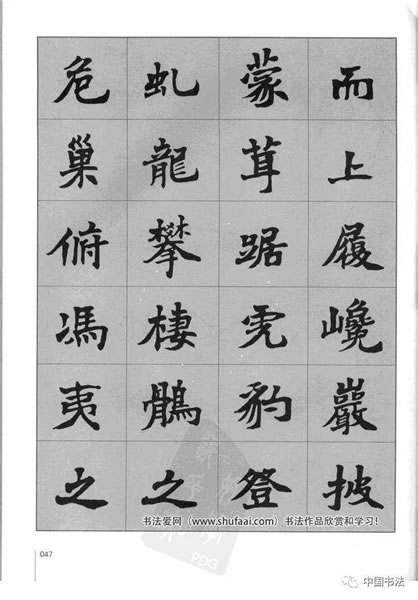 而上履巉巖披
蒙茸踞虎豹登
虬龍攀棲鶻之
危巢俯馮夷之
书法爱网（www.shufaai.com）书法作品欣赏和学习！
047
PDG
中国书法